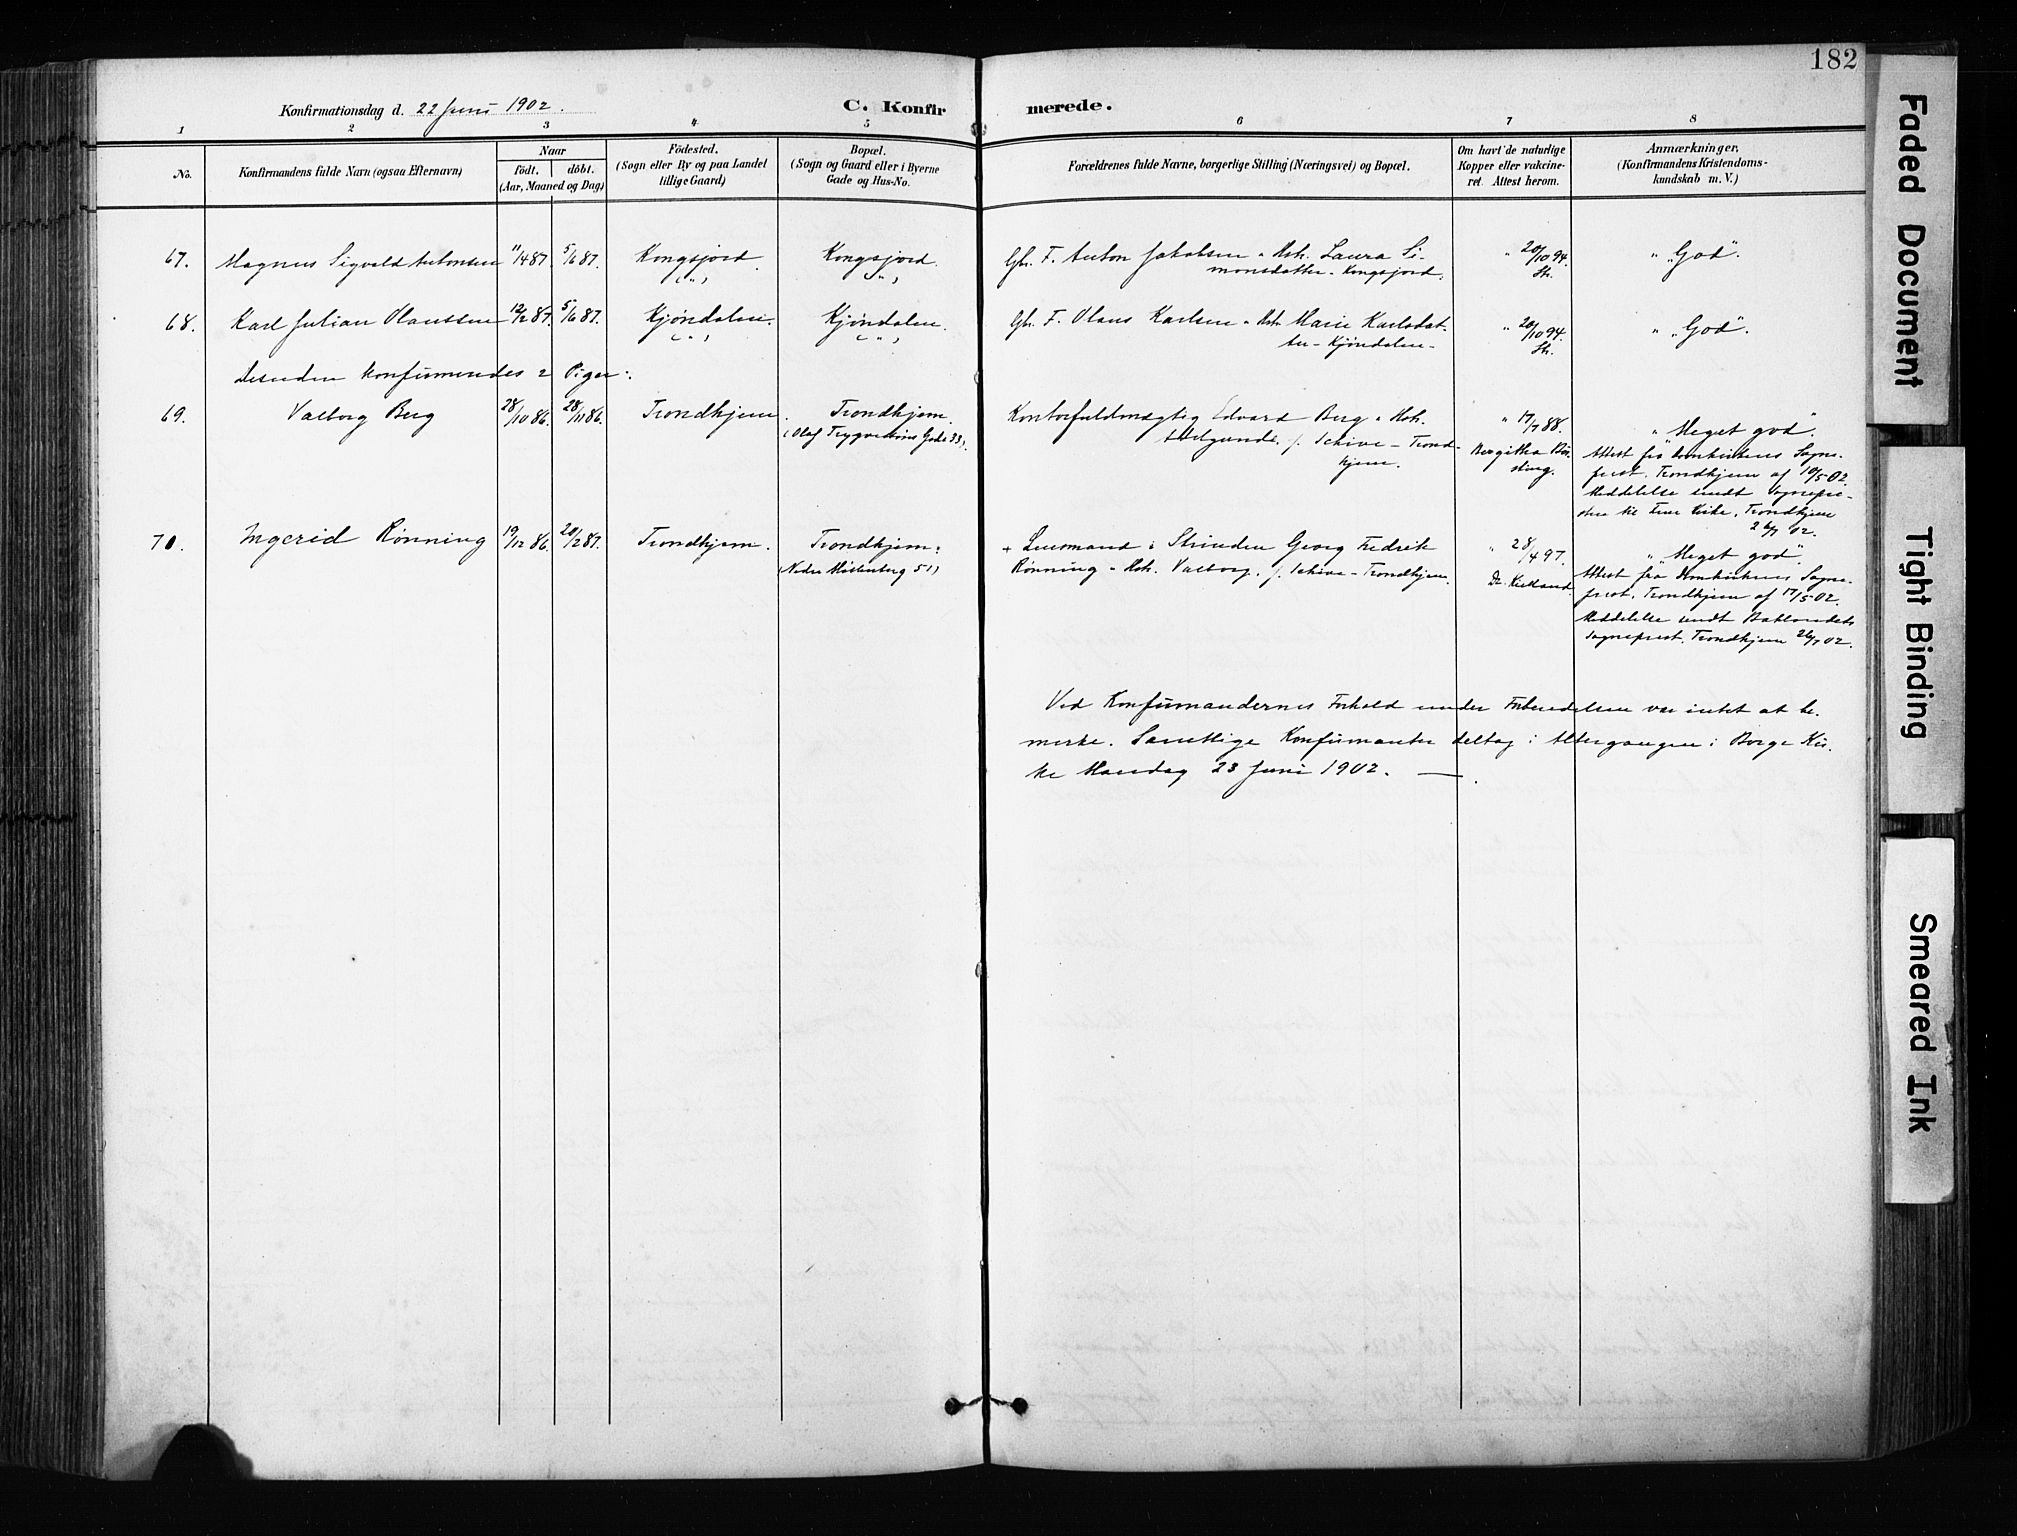 182
Konfirmationsdag d. 22 Juni 1902.
C. Konfir
merede.
1 2 3 4 5 6 7 8
No.
Konfirmandens fulde Navn (ogsaa Efternavn)
Naar
födt. döbt.
(Aar, Maaned og Dag)
Födested.
(Sogn eller By og paa Landet
tillige Gaard)
Bopæl.
(Sogn og Gaard eller i Byerne
Gade og Hus-No.
Forældrenes fulde Navne, borgerlige Stilling (Næringsvei) og Bopæl.
Om havt de naturlige
Kopper eller vakcine-
ret. Attest herom.
Anmærkninger.
(Konfirmandens Kristendoms-
kundskab m. V.)
67. Magnus Sigvald Antonsen 11/4 87. 5/6 87. Kongsjord. Kongsjord. Gbr. F. Anton Jakobsen Hstr. Laura Si-
monsdatter - Kongsjord.
" 20/10 94.
Str.
" "God".
68. Karl Julian Olaussen 12/2 87. 5/6 87. Kjøndalen. Kjøndalen. Gbr. F. Olaus Karlsen Hstr. Marie Karlsdat-
ter - Kjøndalen -
" 20/10 94.
Str.
" "God".
Desuden konfirmeredes 2 Piger:
69. Valborg Berg 28/10 86. 28/11 86. Trondhjem. Trondhjem.
(Olaf Trygvesøns Gade 33).
Kontorfuldmægtig Edvard Berg Hstr.
f. Schive - Trond-
hjem.
" 17/7 88.
"Meget god".
Attest fra Domkirkens Sogne-
prest, Trondhjem af 10/5 02.
Meddelelse sendt Sognepre-
sten til Frue Kirke, Trondhjem
02.
70. Ingerid Rønning 19/12 86. 20/2 87. Trondhjem. Trondhjem.
(Nedre Møllenberg 51)
+ Lensmand i Strinden Georg Fredrik
Rønning Hstr. Valborg, f. Schive - Trondhjem.
" 28/4 97.
Dr. Kielland.
"Meget god".
Attest fra Domkirkens Sogne-
prest, Trondhjem af 17/5 02.
Meddelelse sendt Baklandets
Sogneprest, Trondhjem 26/7 02.
Ved Konfirmandernes Forhold under Forberedelsen var intet at be-
merke. Samtlige Konfirmanter deltog i Altergangen i Borge Kir-
ke Mandag 23 Juni 1902. —
Faded Document
Tight Binding
Smeared Ink